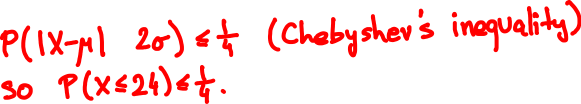 P(|X-μ| 2σ) ≤ 1/4 (Chebyshev's inequality)
so P(X≤24)≤ 1/4.